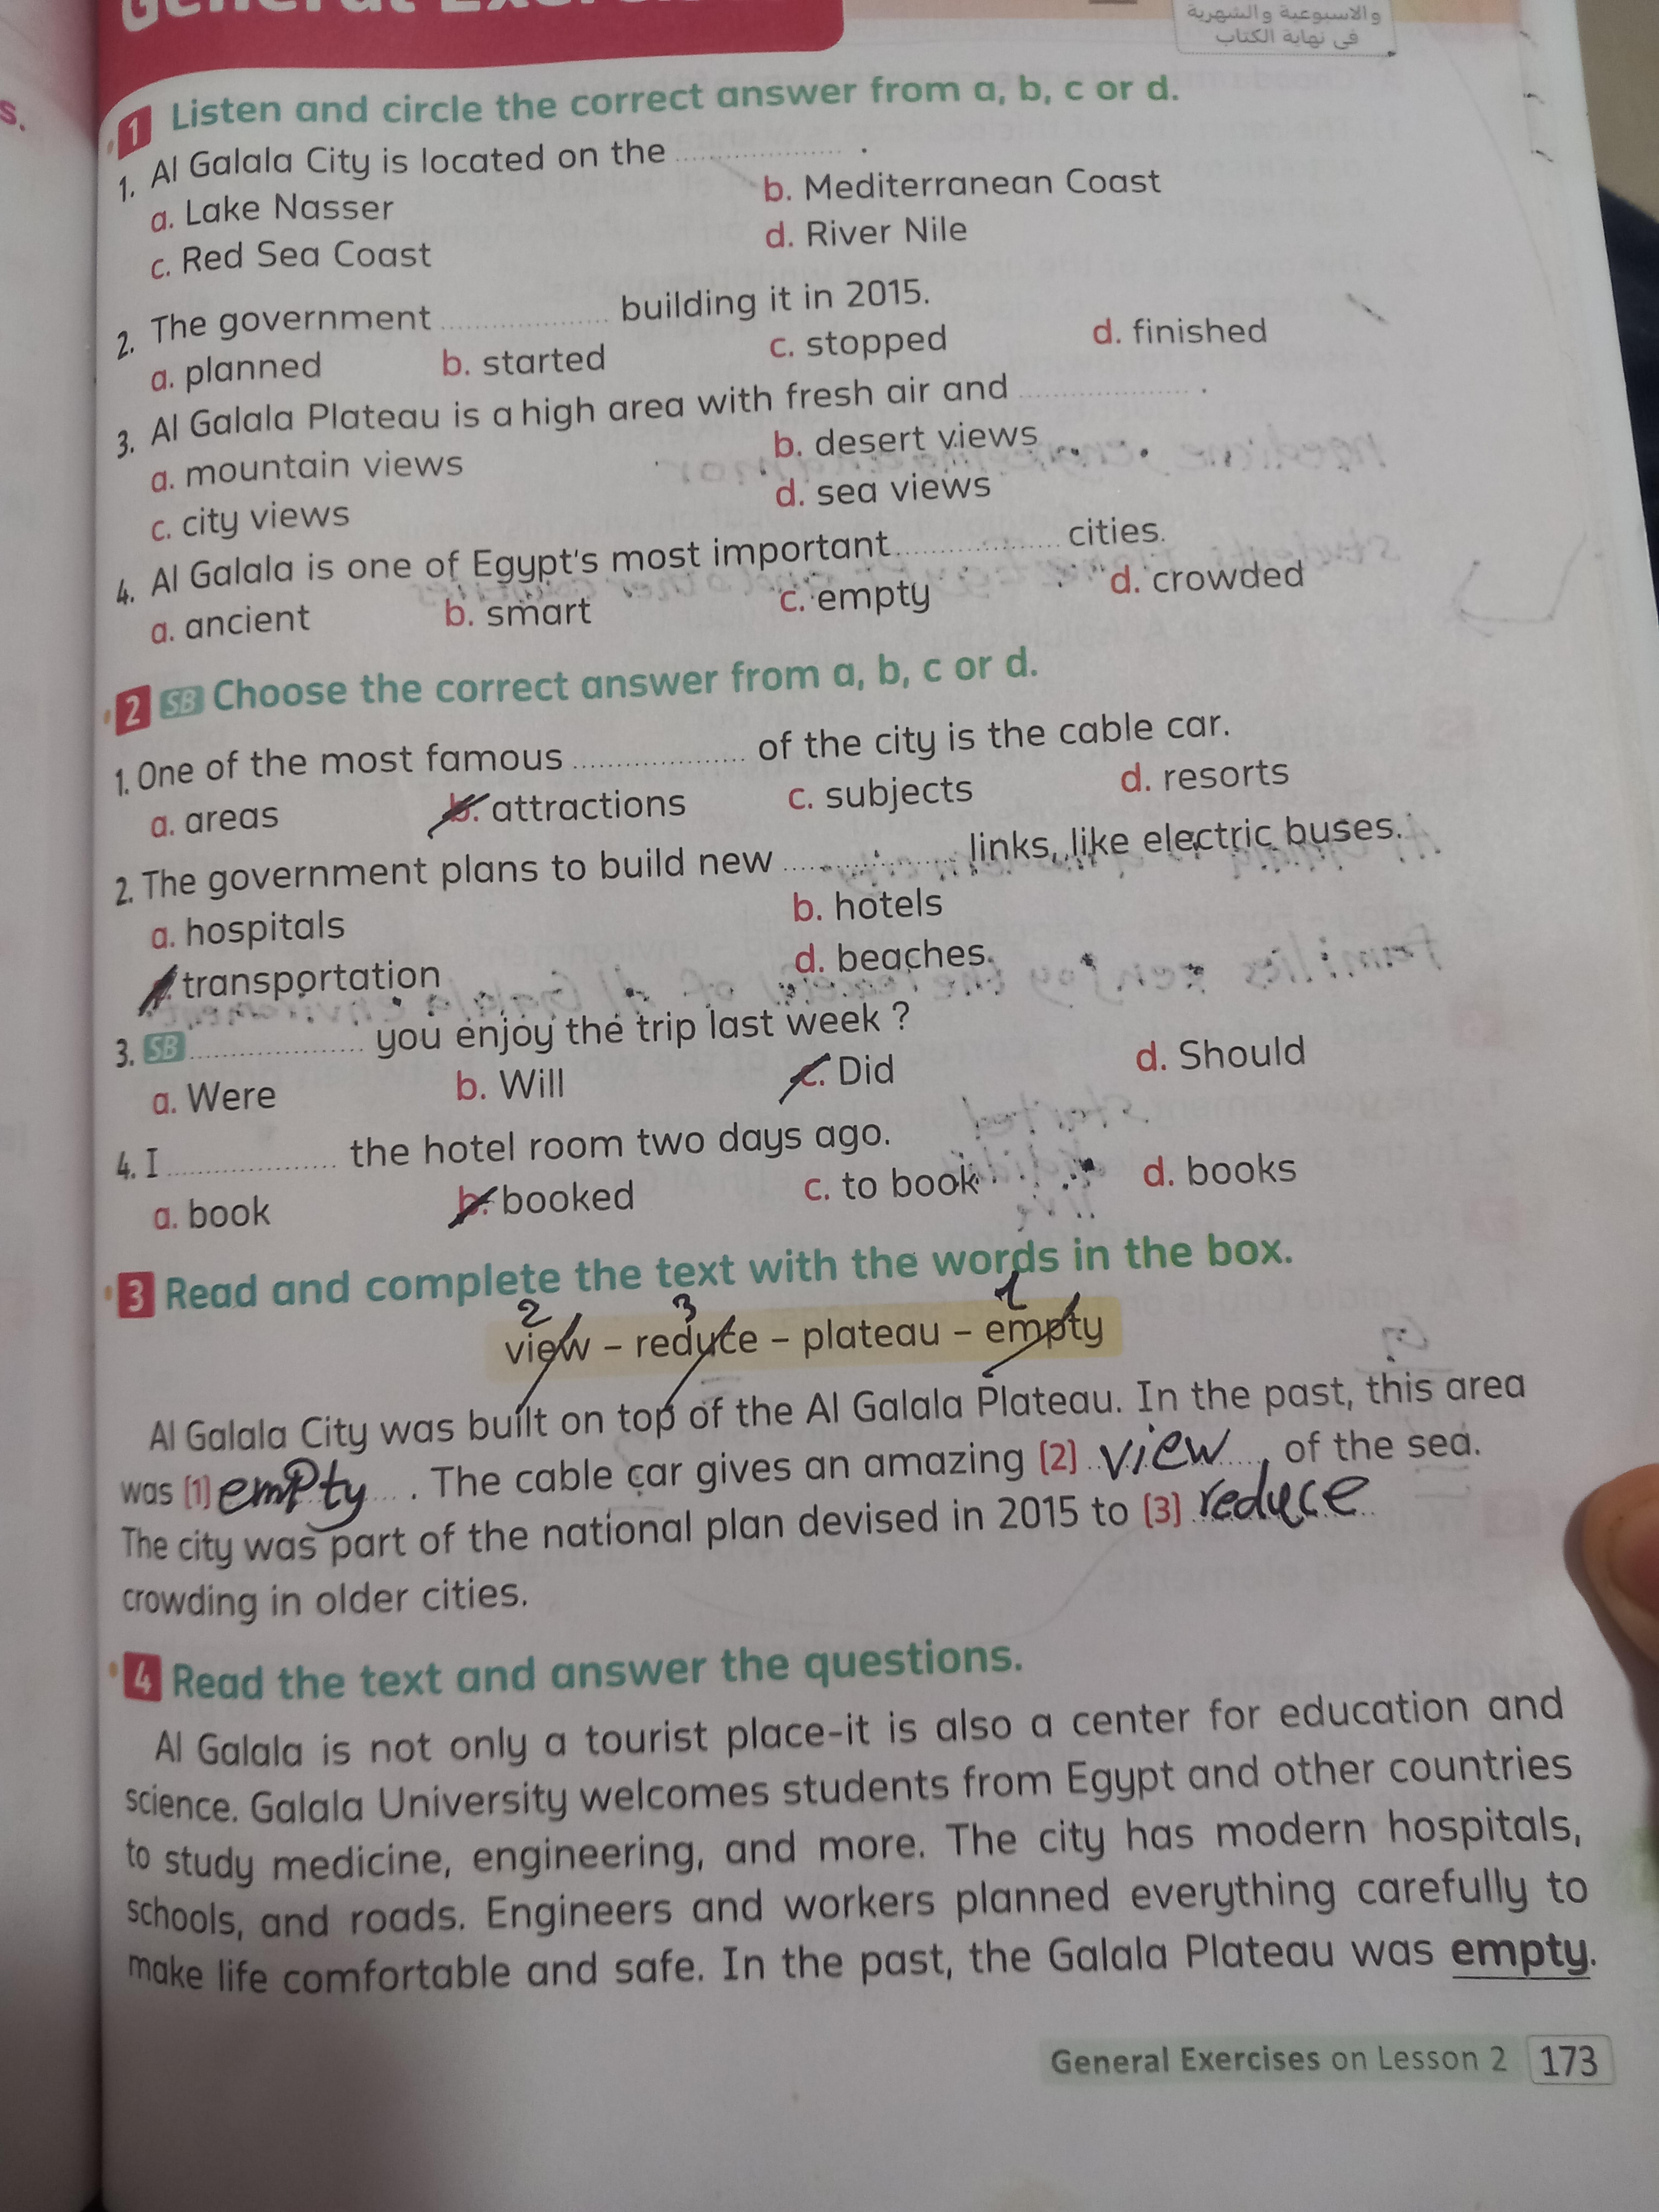 General
والاسبوعية والشهرية
فى نهاية الكتاب
s.
1 Listen and circle the correct answer from a, b, c or d.
1. Al Galala City is located on the .................... .
a. Lake Nasser b. Mediterranean Coast
c. Red Sea Coast d. River Nile
2. The government .................... building it in 2015.
a. planned b. started c. stopped d. finished
3. Al Galala Plateau is a high area with fresh air and .................... .
a. mountain views b. desert views
c. city views d. sea views
4. Al Galala is one of Egypt's most important .................... cities.
a. ancient b. smart c. empty d. crowded
2 SB Choose the correct answer from a, b, c or d.
1. One of the most famous .................... of the city is the cable car.
a. areas b. attractions c. subjects d. resorts
2. The government plans to build new .................... links, like electric buses.
a. hospitals b. hotels
transportation d. beaches
3. SB .................... you enjoy the trip last week ?
a. Were b. Will c. Did d. Should
4. I .................... the hotel room two days ago.
a. book b. booked c. to book d. books
3 Read and complete the text with the words in the box.
2 3 1
view – reduce – plateau – empty
Al Galala City was built on top of the Al Galala Plateau. In the past, this area
was (1) empty . The cable car gives an amazing (2) view of the sea.
The city was part of the national plan devised in 2015 to (3) reduce
crowding in older cities.
4 Read the text and answer the questions.
Al Galala is not only a tourist place-it is also a center for education and
science. Galala University welcomes students from Egypt and other countries
to study medicine, engineering, and more. The city has modern hospitals,
schools, and roads. Engineers and workers planned everything carefully to
make life comfortable and safe. In the past, the Galala Plateau was empty.
General Exercises on Lesson 2 173